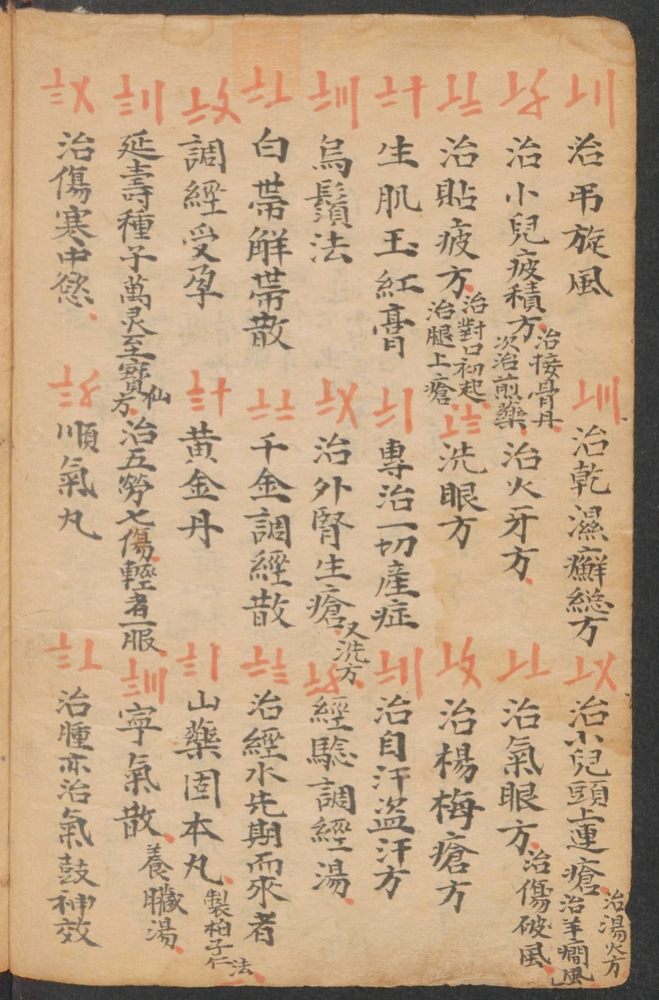 〦〢 治吊旋風
〦〣 治乾濕癬総方
〦〤 治小兒頭上連瘡 治湯火方 治羊癎風
〦〥 治小兒疲積方 治接骨丹 次治煎藥 治火牙方
〦〦 治氣眼方 治傷破風
〦〧 治貼疲方 治對口初起 治腿上瘡
〦〨 洗眼方
〦〩 治楊梅瘡方
〧十 生肌玉紅膏
〧〡 專治一切產症
〧〢 治自汗盜汗方
〧〣 烏鬚法
〧〤 治外腎生瘡 又洗方
〧〥 經驗調經湯
〧〦 白帶解帶散
〧〧 千金調經散
〧〨 治經水先期而來者
〧〩 調經受孕
〨十 黄金丹
〨〡 山藥固本丸 製柏子仁法
〨〢 延壽種子萬灵至寶仙方 治五勞七傷輕者一服
〨〣 寧氣散 養臟湯
〨〤 治傷寒中慾
〨〥 順氣丸
〨〦 治腫亦治氣鼓神效